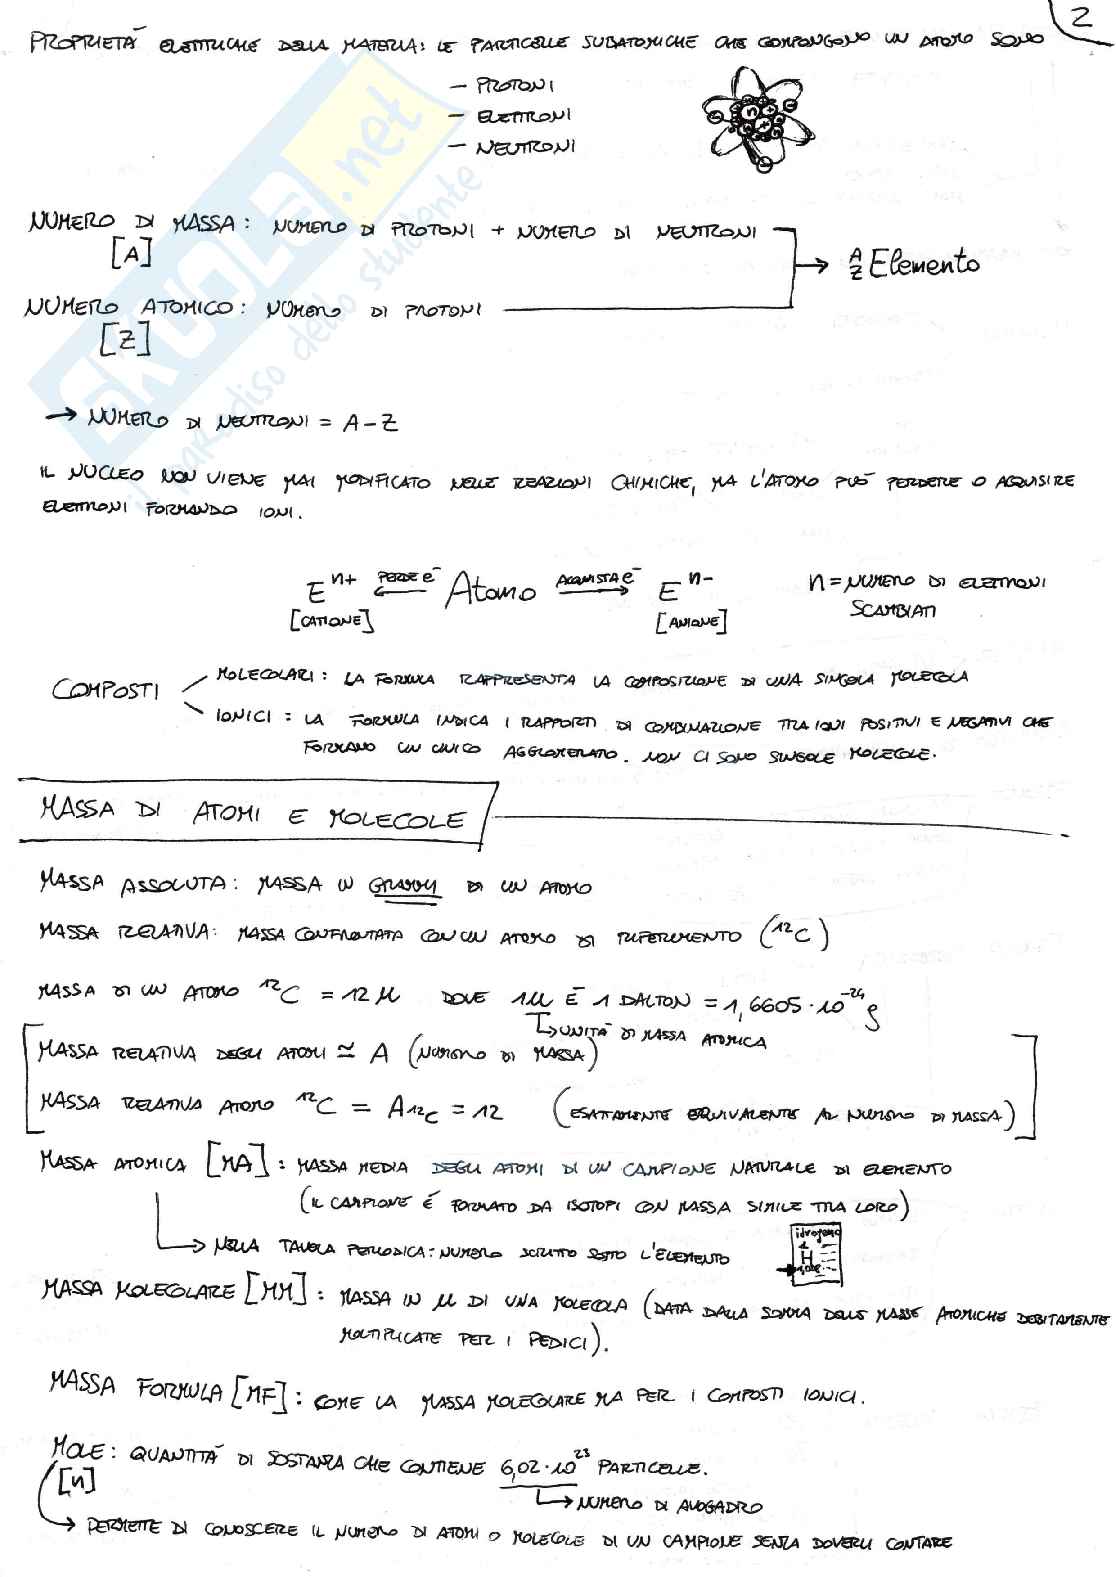 2
PROPRIETÀ ELETTRICHE DELLA MATERIA: LE PARTICELLE SUBATOMICHE CHE COMPONGONO UN ATOMO SONO
- PROTONI
- ELETTRONI
- NEUTRONI
NUMERO DI MASSA: NUMERO DI PROTONI + NUMERO DI NEUTRONI
[A]
→ A Z Elemento
NUMERO ATOMICO: NUMERO DI PROTONI
[Z]
→ NUMERO DI NEUTRONI = A - Z
IL NUCLEO NON VIENE MAI MODIFICATO NELLE REAZIONI CHIMICHE, MA L'ATOMO PUÒ PERDERE O ACQUISIRE
ELETTRONI FORMANDO IONI.
E^n+ ← PERDE e⁻ Atomo ACQUISTA e⁻ → E^n- n = NUMERO DI ELETTRONI
[CATIONE] [ANIONE] SCAMBIATI
COMPOSTI
MOLECOLARI: LA FORMULA RAPPRESENTA LA COMPOSIZIONE DI UNA SINGOLA MOLECOLA
IONICI: LA FORMULA INDICA I RAPPORTI DI COMBINAZIONE TRA IONI POSITIVI E NEGATIVI CHE
FORMANO UN UNICO AGGLOMERATO. NON CI SONO SINGOLE MOLECOLE.
MASSA DI ATOMI E MOLECOLE
MASSA ASSOLUTA: MASSA IN GRAMMI DI UN ATOMO
MASSA RELATIVA: MASSA CONFRONTATA CON UN ATOMO DI RIFERIMENTO (¹²C)
MASSA DI UN ATOMO ¹²C = 12 u DOVE 1u È 1 DALTON = 1,6605·10⁻²⁴ g
↳ UNITÀ DI MASSA ATOMICA
MASSA RELATIVA DEGLI ATOMI ≃ A (NUMERO DI MASSA)
MASSA RELATIVA ATOMO ¹²C = A₁₂C = 12 (ESATTAMENTE EQUIVALENTE AL NUMERO DI MASSA)
MASSA ATOMICA [MA]: MASSA MEDIA DEGLI ATOMI DI UN CAMPIONE NATURALE DI ELEMENTO
(IL CAMPIONE È FORMATO DA ISOTOPI CON MASSA SIMILE TRA LORO)
→ NELLA TAVOLA PERIODICA: NUMERO SCRITTO SOTTO L'ELEMENTO
idrogeno
1
H
MASSA MOLECOLARE [MM]: MASSA IN u DI UNA MOLECOLA (DATA DALLA SOMMA DELLE MASSE ATOMICHE DEBITAMENTE
MOLTIPLICATE PER I PEDICI).
MASSA FORMULA [MF]: COME LA MASSA MOLECOLARE MA PER I COMPOSTI IONICI.
MOLE: QUANTITÀ DI SOSTANZA CHE CONTIENE 6,02·10²³ PARTICELLE.
[n]
↳ NUMERO DI AVOGADRO
→ PERMETTE DI CONOSCERE IL NUMERO DI ATOMI O MOLECOLE DI UN CAMPIONE SENZA DOVERLI CONTARE
SKUOLA.net
il paradiso dello studente